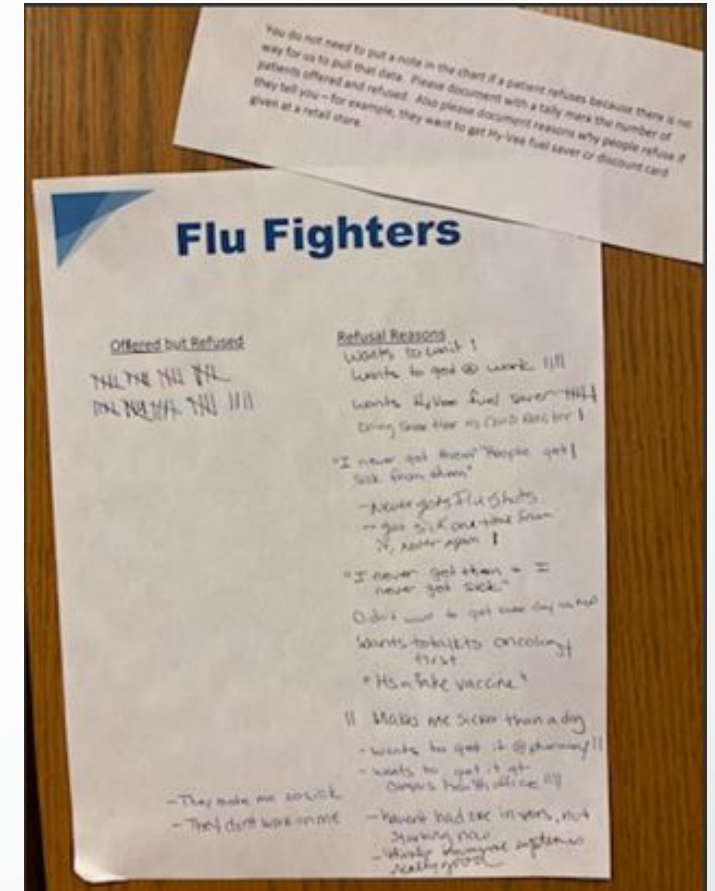 You do not need to put a note in the chart if a patient refuses because there is no
way for us to pull that data. Please document with a tally mark the number of
patients offered and refused. Also please document reasons why people refuse if
they tell you – for example, they want to get Hy-Vee fuel saver or discount card
given at a retail store.
Flu Fighters
Offered but Refused
Refusal Reasons
Wants to wait
Wants to get @ work
wants HyVee fuel saver
"I never get them" "People get
sick from them"
- Never gets Flu Shots
- got sick one time from
it, never again
"I never get them + I
never get sick"
Didn't want to get same day as
Wants to talk to oncology
first
"Its a fake vaccine"
Makes me sicker than a dog
- wants to get it @ pharmacy
- wants to get it at
health office
- They make me so sick
- They don't work on me
- haven't had one in yrs, not
starting now
- thinks immune system is
really good